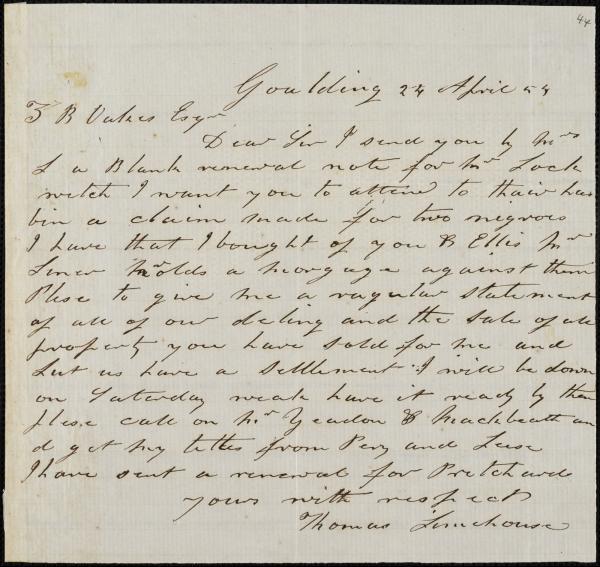 44
Goulding 24 April 54
Z B Oakes Esqr
Dear Sir I send you by Mrs
L a Blank renewal note for Mr Lock
witch I want you to attend to thair has
bin a claim made for two negroes
I have that I bought of you & Ellis Mr
holds a morgage against them
Plese to give me a ragular statement
of all of our deling and the sale of all
property you have sold for me and
Let us have a settlement I will be down
on Saturday weak have it ready by then
plese call on Mr Yeadon & Mackbeath an
d get my titles from Pery and Lese
I have sent a renewal for Pretchard
yours with respect
Thomas Limehouse